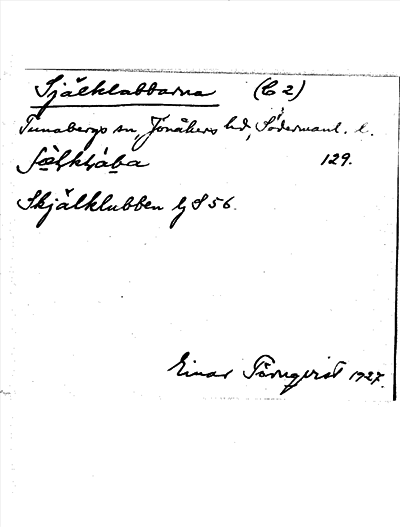 Själklabbarna (C2)
Tunabergs sn, Jönåkers hd, Södermanl. l.
129.
Skjälklubben lj S 56.
Einar Törnqvist 1927.